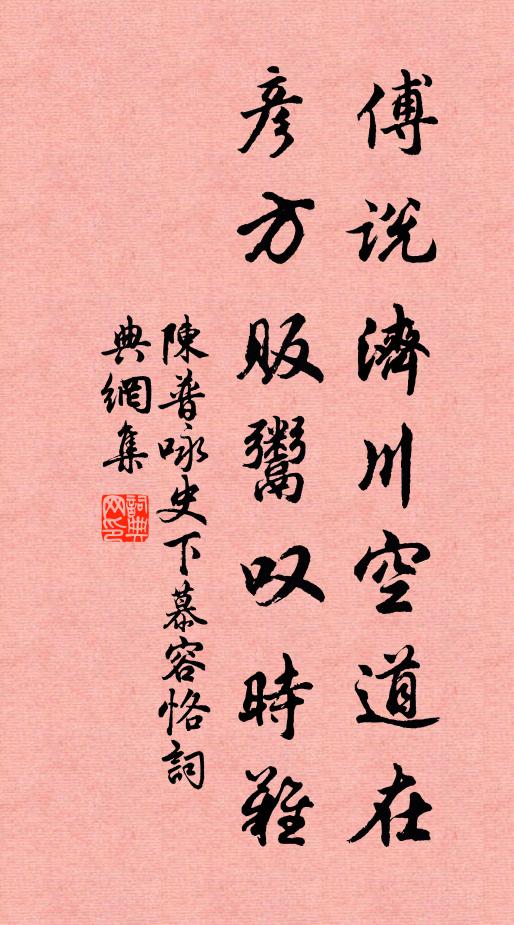 傅说濟川空道在
彦方販鬻叹時難
陳普咏史下慕容恪詞
典網集
詞典网印